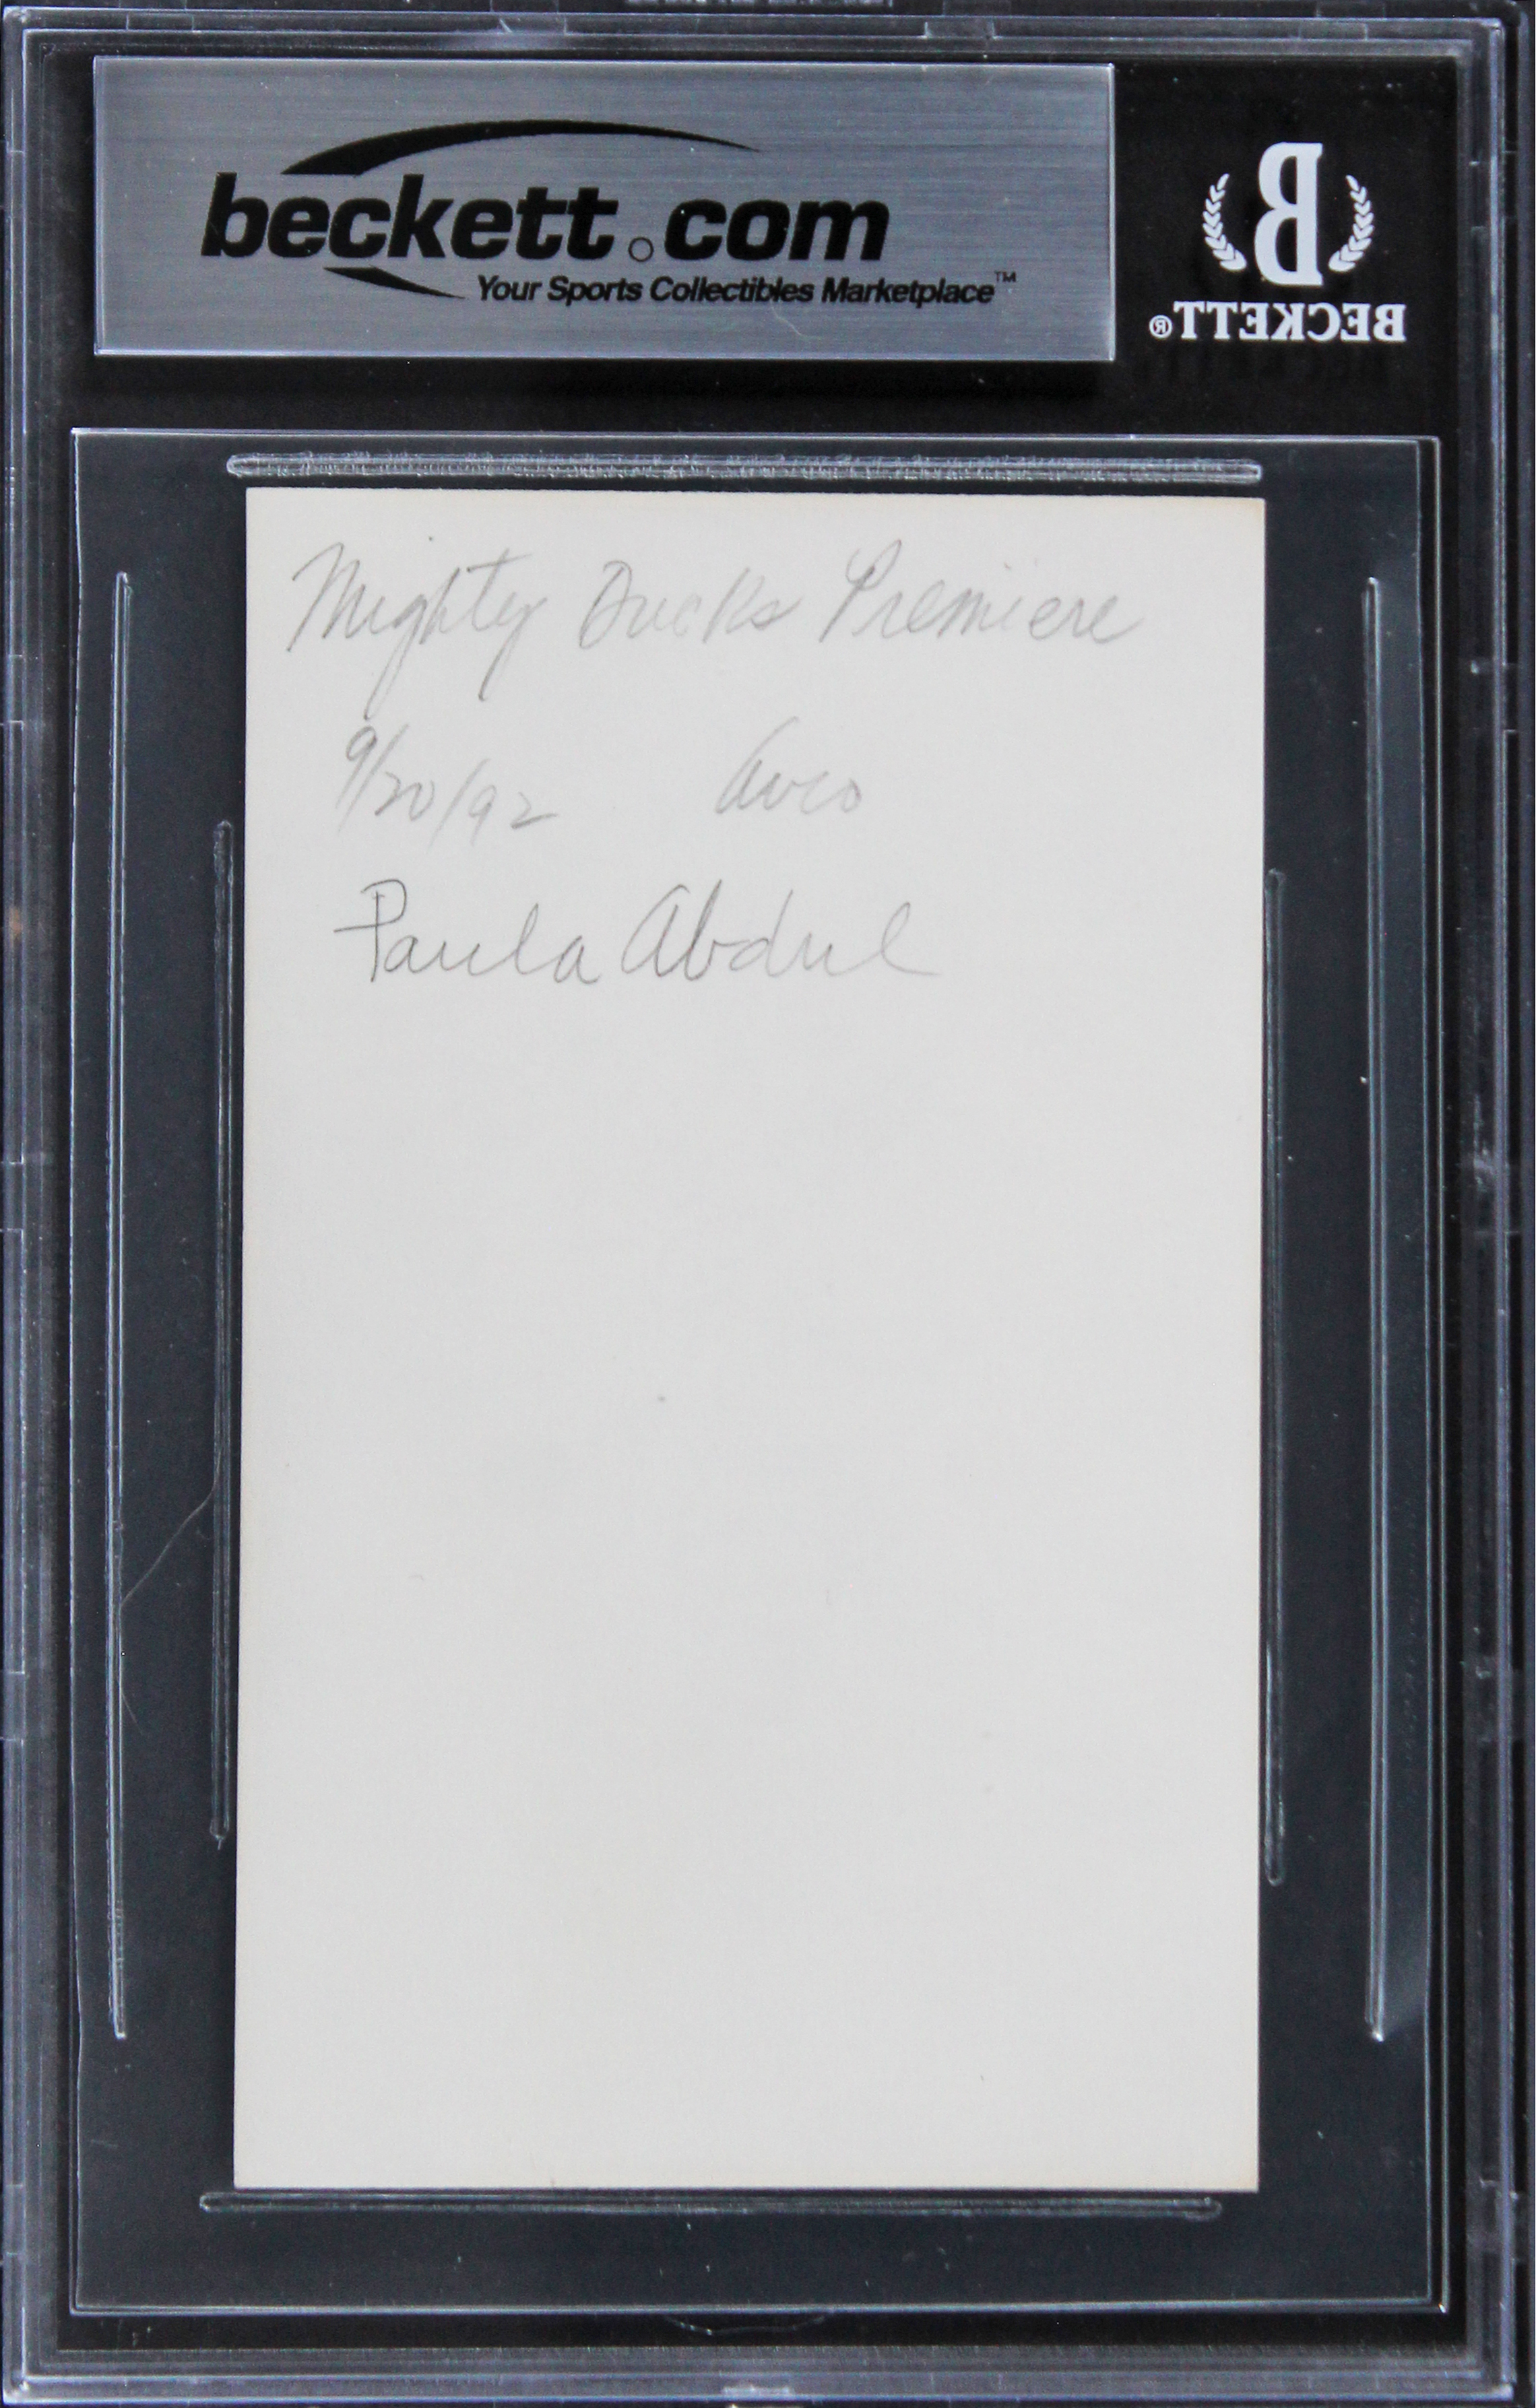 beckett.com
Your Sports Collectibles Marketplace™
B
BECKETT®
Mighty Ducks Premiere
9/20/92 Avco
Paula Abdul